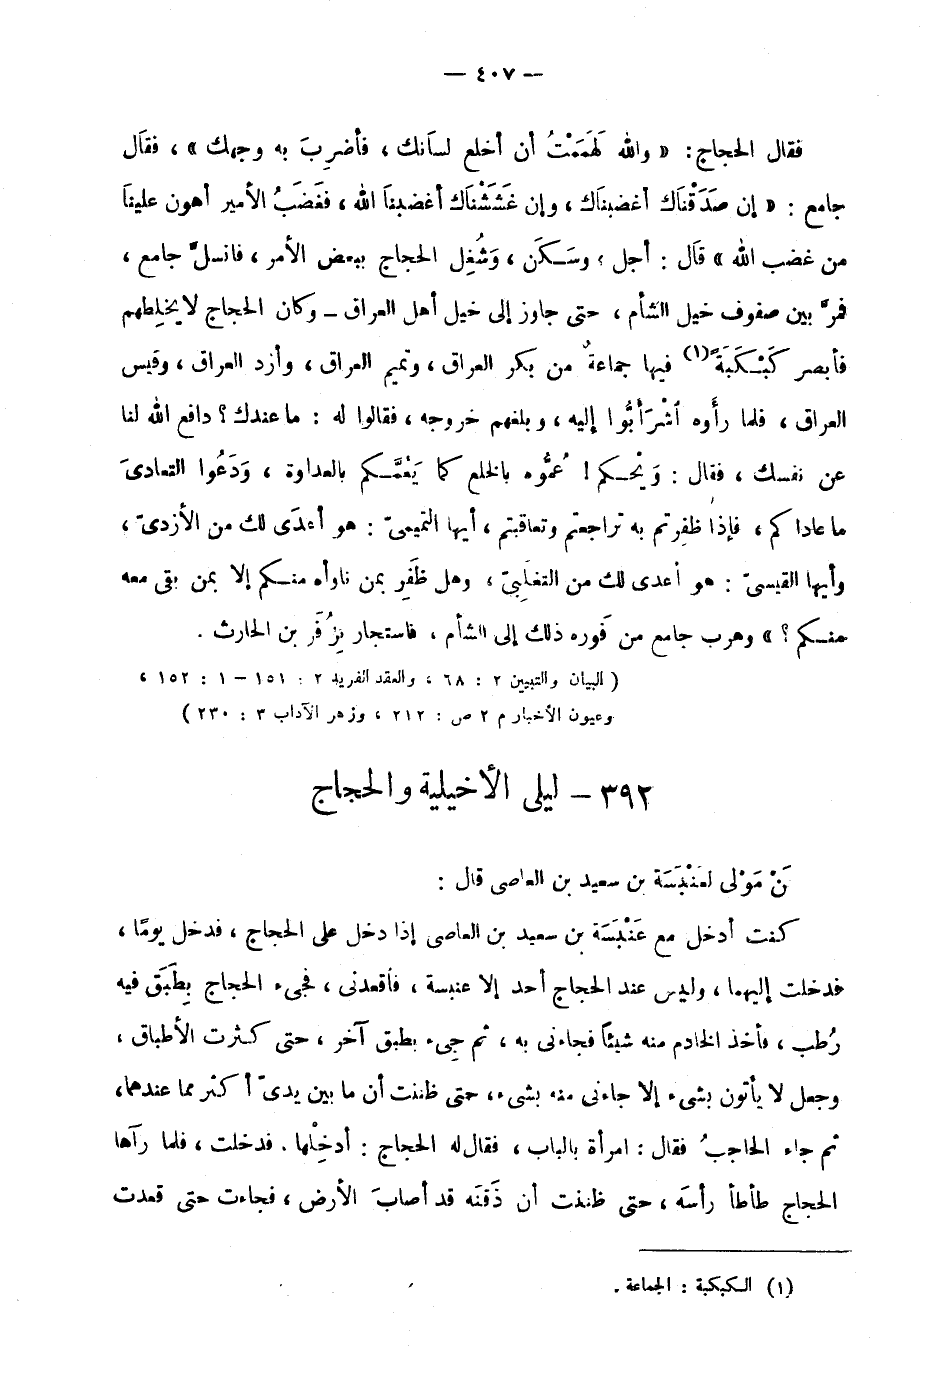 — ٤٠٧ —
فقال الحجاج: « والله لَهَمَمْتُ أن أخلع لسانك ، فأضرِبَ به وجهك » ، فقال
جامع : « إن صَدَقْناك أغضبناك ، وإن غَشَشْناك أغضبنا الله ، فغَضَبُ الأمير أهون علينا
من غضب الله » قال : أجل ، وسَكَن ، وَشُغِل الحجاج ببعض الأمر ، فانسلّ جامع ،
فمرّ بين صفوف خيل الشأم ، حتى جاوز إلى خيل أهل العراق – وكان الحجاج لا يخلِطهم
فأبصر كَبْكَبَةً (١) فيها جماعةٌ من بكر العراق ، وتميم العراق ، وأزد العراق ، وقيس
العراق ، فلما رأَوه ٱشْرَأَبُّوا إليه ، وبلغهم خروجه ، فقالوا له : ما عندك ؟ دافع الله لنا
عن نفسك ، فقال : وَيْحكم ! عُمُّوه بالخلع كما يَعُمَّكم بالعداوة ، وَدَعُوا التعادىَ
ما عاداكم ، فإذا ظفِرتم به تراجعتم وتعاقبتم ، أيها التميمىّ : هو أعدَى لك من الأزدىّ ،
وأيها القيسىّ : هو أعدى لك من التغلبىّ ، وهل ظَفِر بمن ناوأه منكم إلا بمن بقى معه
منكم ؟ » وهرب جامع من فَوره ذلك إلى الشأم ، فاستجار بِزُفَر بن الحارث .
( البيان والتبيين ٢ : ٦٨ ، والعقد الفريد ٢ : ١٥١ – ١ : ١٥٢ ،
وعيون الأخبار م ٢ ص : ٢١٢ ، وزهر الآداب ٣ : ٢٣٠ )
٣٩٢ – ليلى الأخيلية والحجاج
عَنْ مَوْلى لعَنْبَسَة بن سعيد بن العاصى قال :
كنت أدخل مع عَنْبَسَة بن سعيد بن العاصى إذا دخل على الحجاج ، فدخل يومًا ،
فدخلت إليهما ، وليس عند الحجاج أحد إلا عنبسة ، فأقعدنى ، فجىء الحجاج بِطَبَق فيه
رُطب ، فأخذ الخادم منه شيئًا فجاءنى به ، ثم جىء بطبق آخر ، حتى كثرت الأطباق ،
وجعل لا يأتون بشىء إلا جاءنى منه بشىء ، حتى ظننت أن ما بين يدىّ أكثر مما عندهما ،
ثم جاء الحاجبُ فقال : امرأة بالباب ، فقال له الحجاج : أدخِلْها . فدخلت ، فلما رآها
الحجاج طأطأ رأسَه ، حتى ظننت أن ذَقَنَه قد أصابَ الأرض ، فجاءت حتى قعدت
(١) الكبكبة : الجماعة .